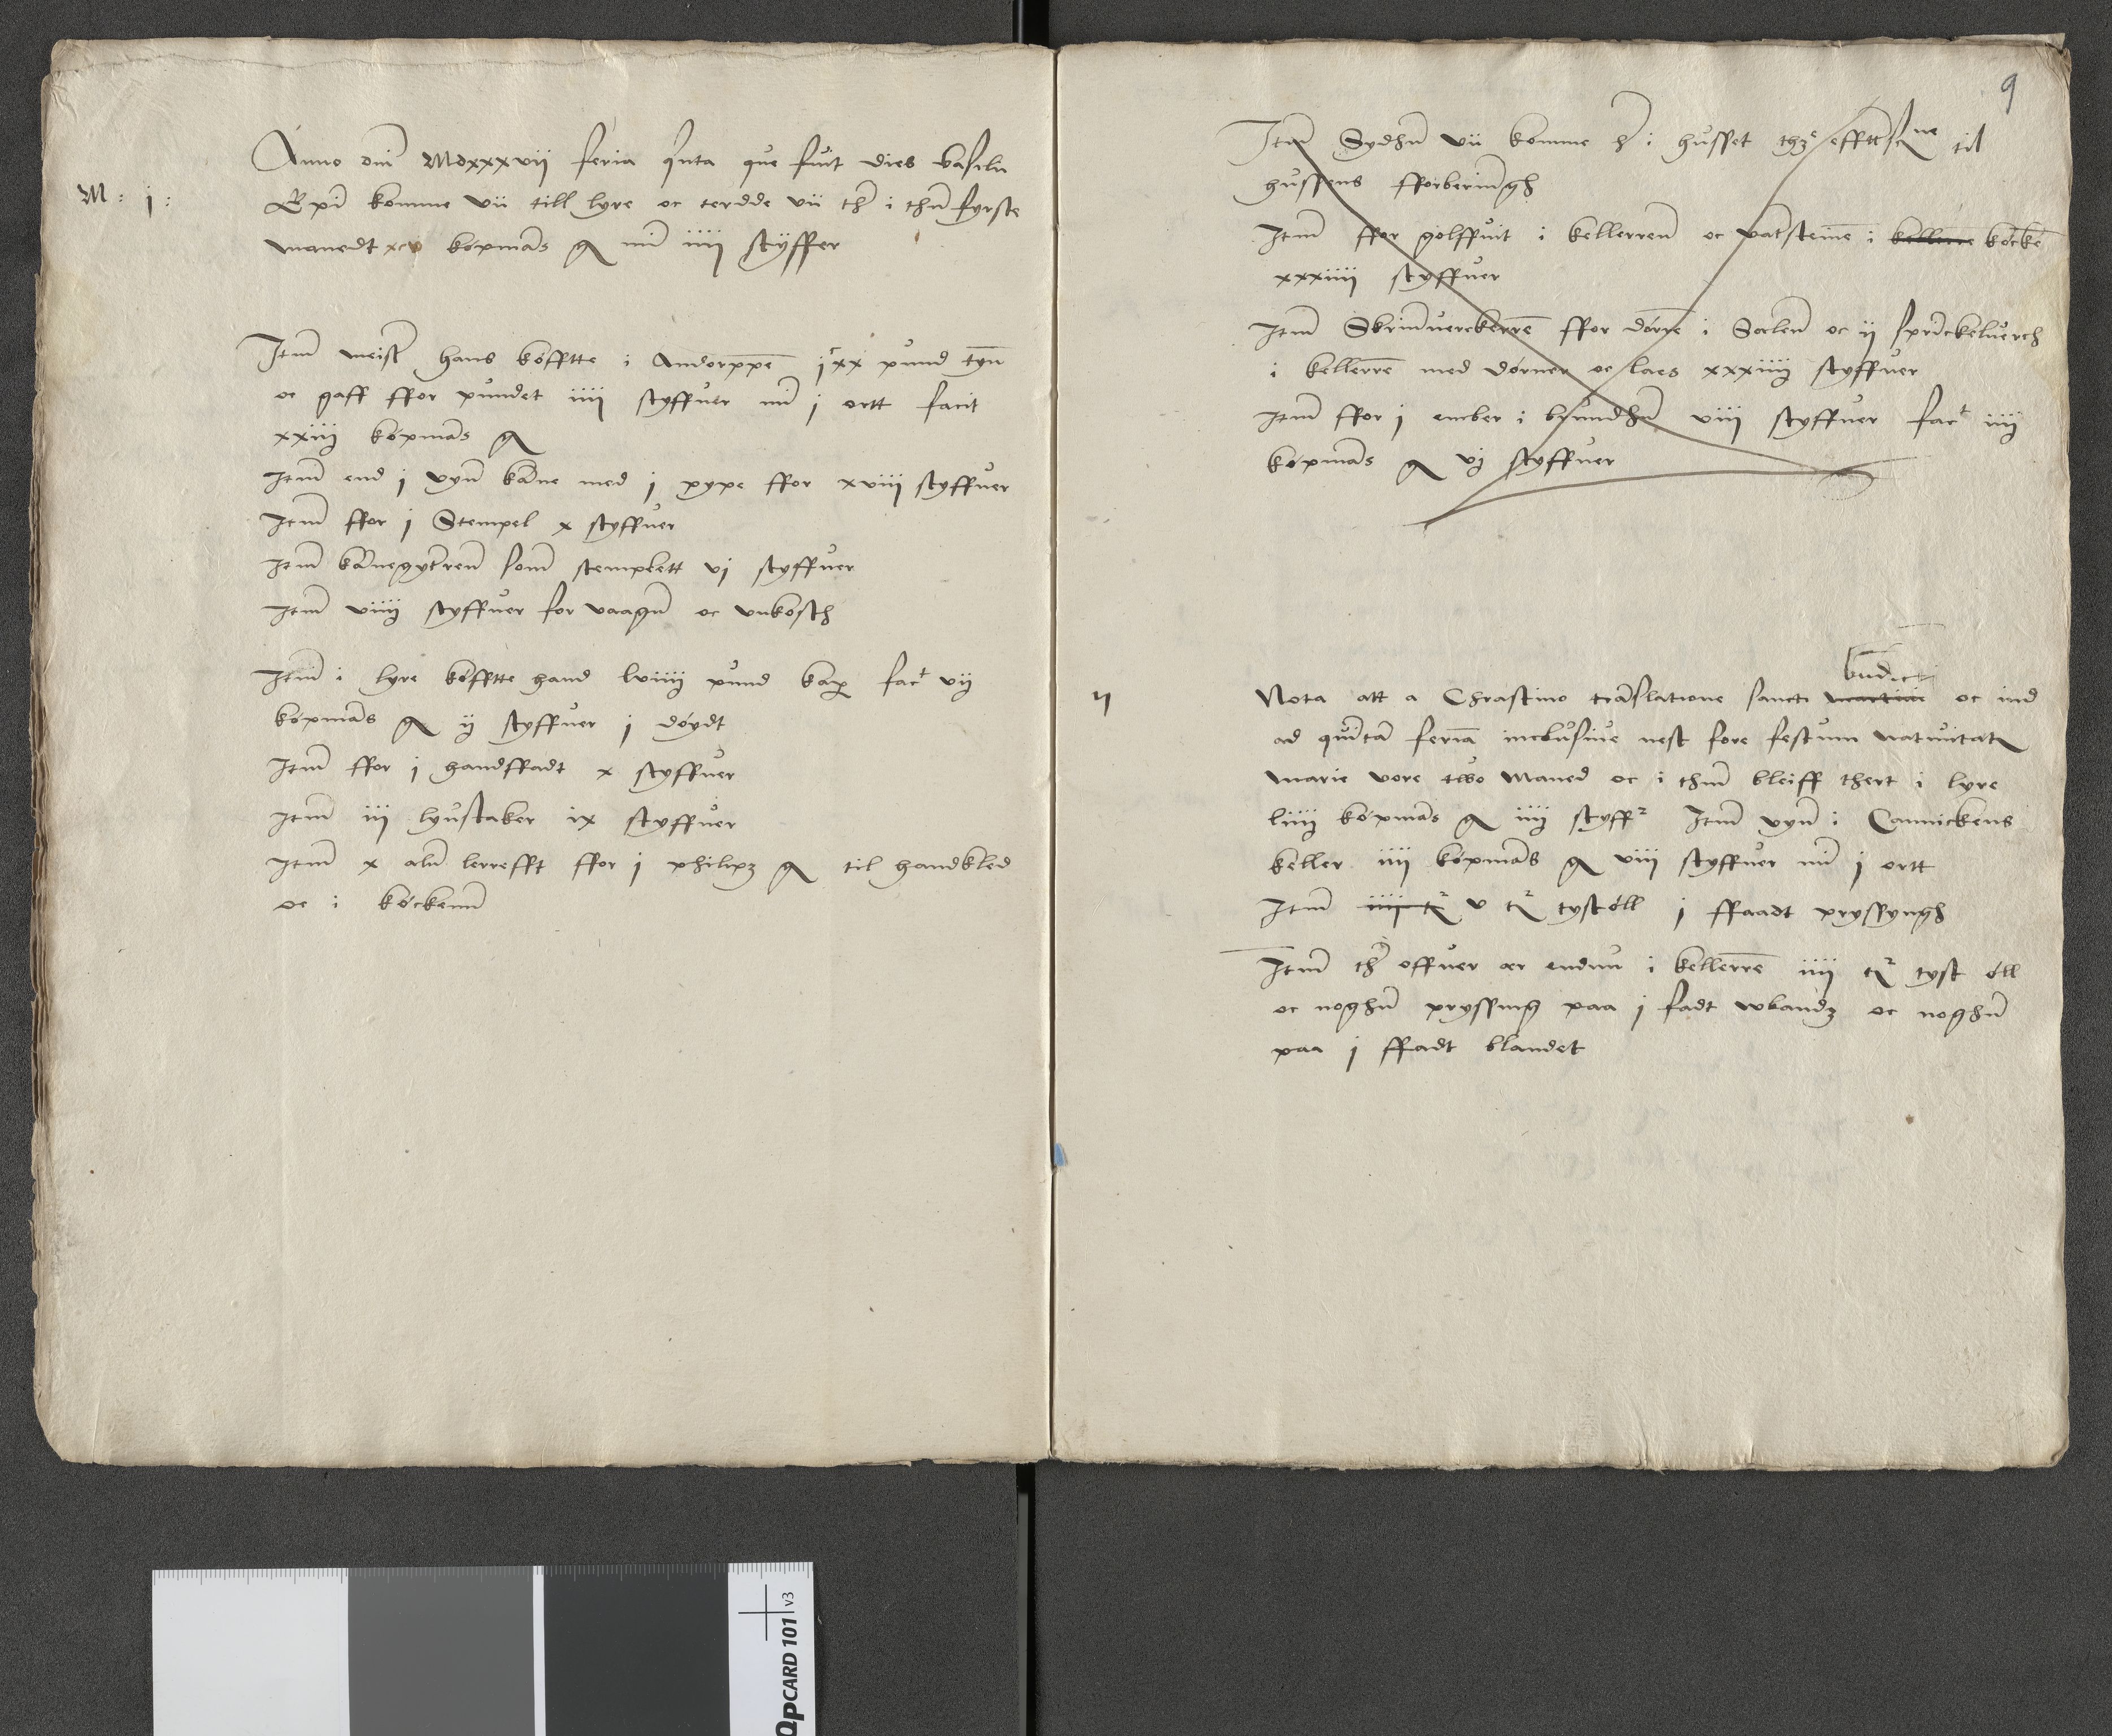 Anno dni Mdxxxvii feria qnta que fuit dies basilii
M : j :
Epi komme vii till lyre oc terdde vii ther i thn fyrste
manedt xcv køpmas g mi iiij styffer
Itm meist hans køfftte i Andorppe jc xx pund tyn
oc gaff ffor pundet iiij styffuer mi j ortt facit
xxiij køpmas g
Itm end j vyn kane med j pype ffor xviij styffuer
Itm ffor j Stempel x styffuer
Itm kanegytren som stemplett vj styffuer
Itm viiij styffuer for vaagn oc vnkosth
Itm i lyre køfftte hand lviiij pund kap fact vij
køpmas g ij styffuer j døydt
Itm ffor j handffadt x styffuer
Itm iij lyustaker ix styffuer
Itm x aln lerrefft ffor j philipz g til handkled
oc i køckenn
9
Itm Sydhn vii komme h i husset thz efftt til
hussens fforberingh
Itm ffor golffuit i kellerren oc vatsteine i kellerre køcke
xxxiiij styffuer
Itm Skrinuerckerre ffor dørre i Salen oc ij sprickeluerch
i kellerre med dørner oc laes xxxiiij styffuer
Itm ffor j ember i brundhn viij styffuer fact iiij
køpmas g vj styffuer
bndicti
Nota att a Chrastino traslatione sancti martini oc ind
ad quinta feria inclusiue nest fore festum natiuitat
marie vore two maned oc i thm bleiff thert i lyre
liiij køpmas g iiij styff Itm vyn i Cannickens
keller iiij køpmas g viij styffuer mi j ortt
Itm iiij tr v tr tystøll j ffaadt pryssyngh
Itm th offuer ær endnu i kellerre iiij tr tyst øll
oc noghn pryssing paa j fadt wblandz oc noghn
paa j ffadt blandet